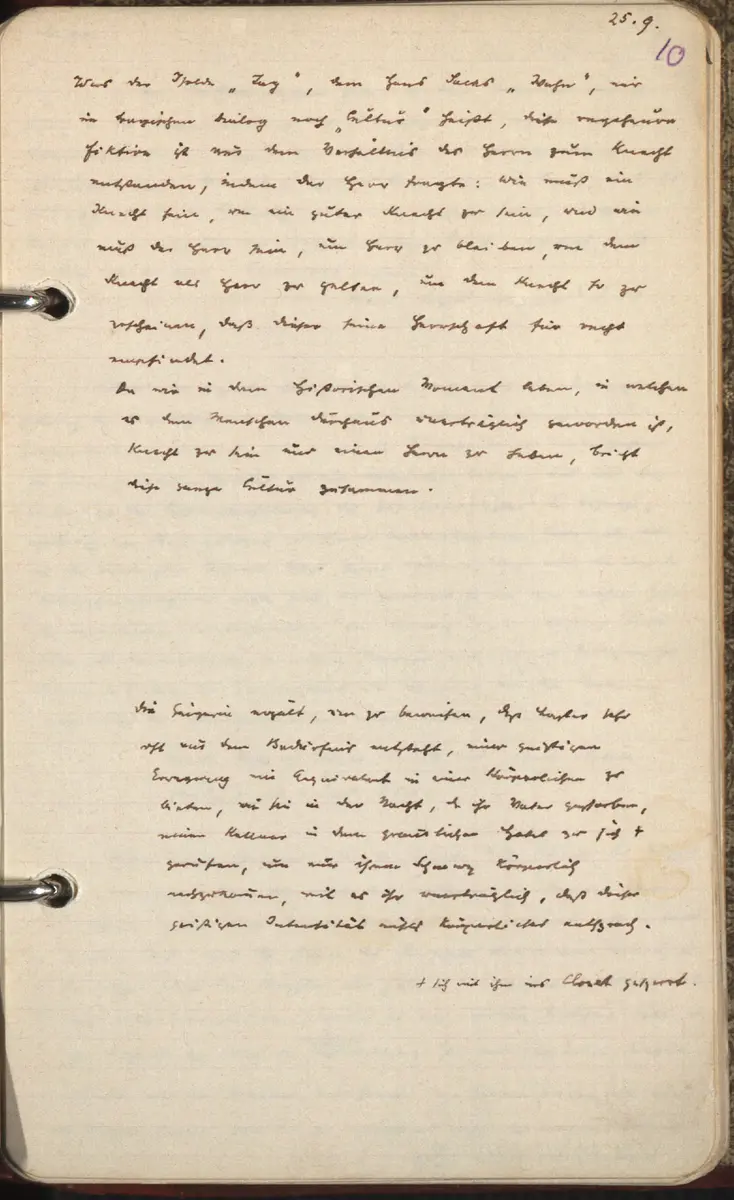 25.9.
10
Was der Isolde „Tag“, dem Hans Sachs „Wahn“, mir
im tragischen Dialog noch „Cultur“ heißt, diese ungeheure
Fiktion ist aus dem Verhältnis des Herrn zum Knecht
entstanden, indem der Herr fragte: wie muß ein
Knecht sein, um ein guter Knecht zu sein, und wie
muß der Herr sein, um Herr zu bleiben, um dem
Knecht als Herr zu gelten, um dem Knecht so zu
erscheinen, daß dieser seine Herrschaft für recht
empfindet.
Da wir in dem historischen Moment leben, in welchem
es dem Menschen durchaus unerträglich geworden ist,
Knecht zu sein und einen Herrn zu haben, bricht
diese ganze Cultur zusammen.
Die erzält, um zu beweisen, daß Laster sehr
oft aus dem Bedürfnis entsteht, einer geistigen
Erregung ein Equivalent in einer körperlichen zu
bieten, wie sie in der Nacht, da ihr Vater gestorben,
einen Kellner in dem Hotel zu sich +
gerufen, um nur ihrem Schmerz körperlich
, weil es ihr unerträglich, daß dieser
geistigen Intensität nichts Körperliches entsprach.
+ sich mit ihm ins Closet gesperrt.